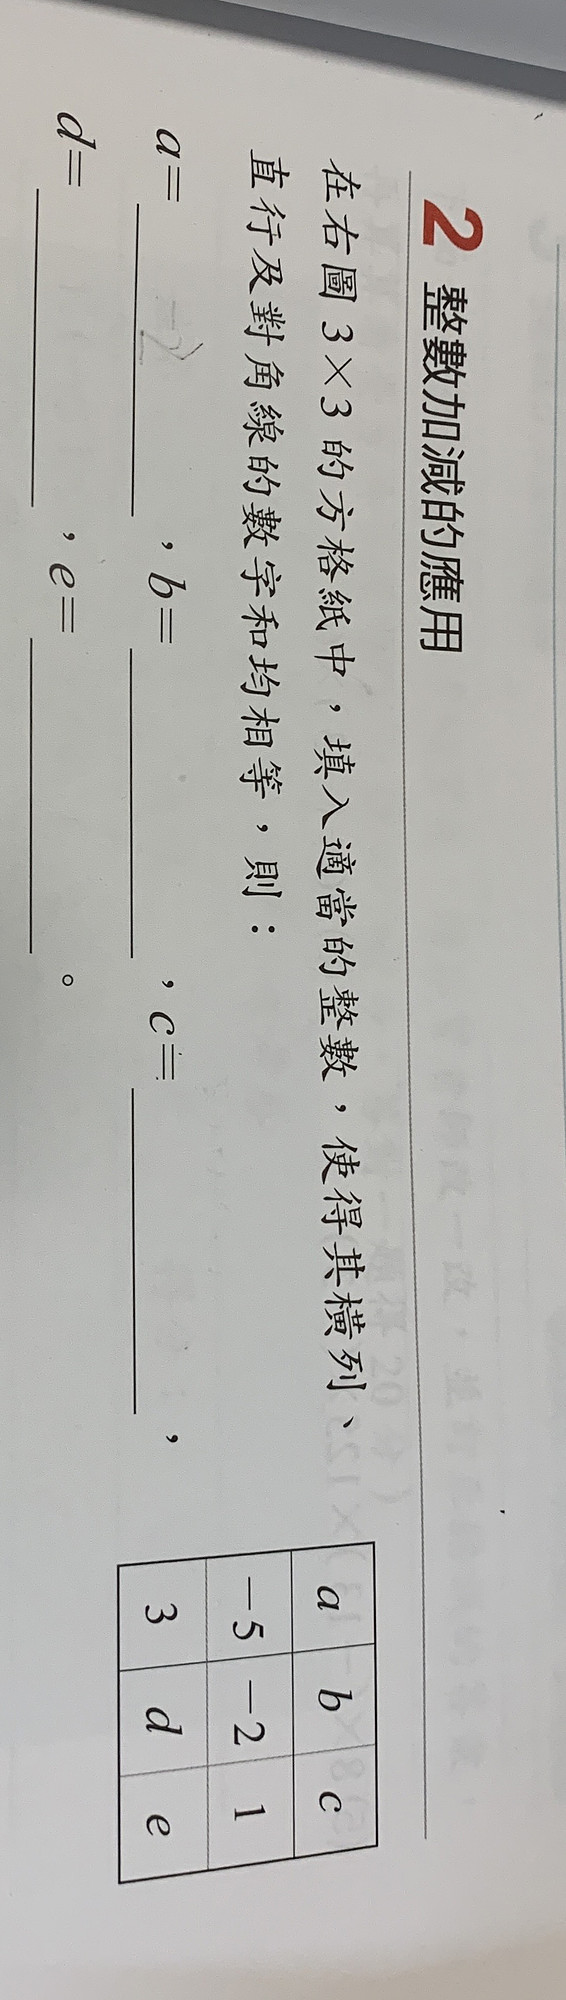 2 整數加減的應用
在右圖 3×3 的方格紙中，填入適當的整數，使得其橫列、
直行及對角線的數字和均相等，則：
a= -2 ，b= ，c= ，
d= ，e= 。
a b c
-5 -2 1
3 d e